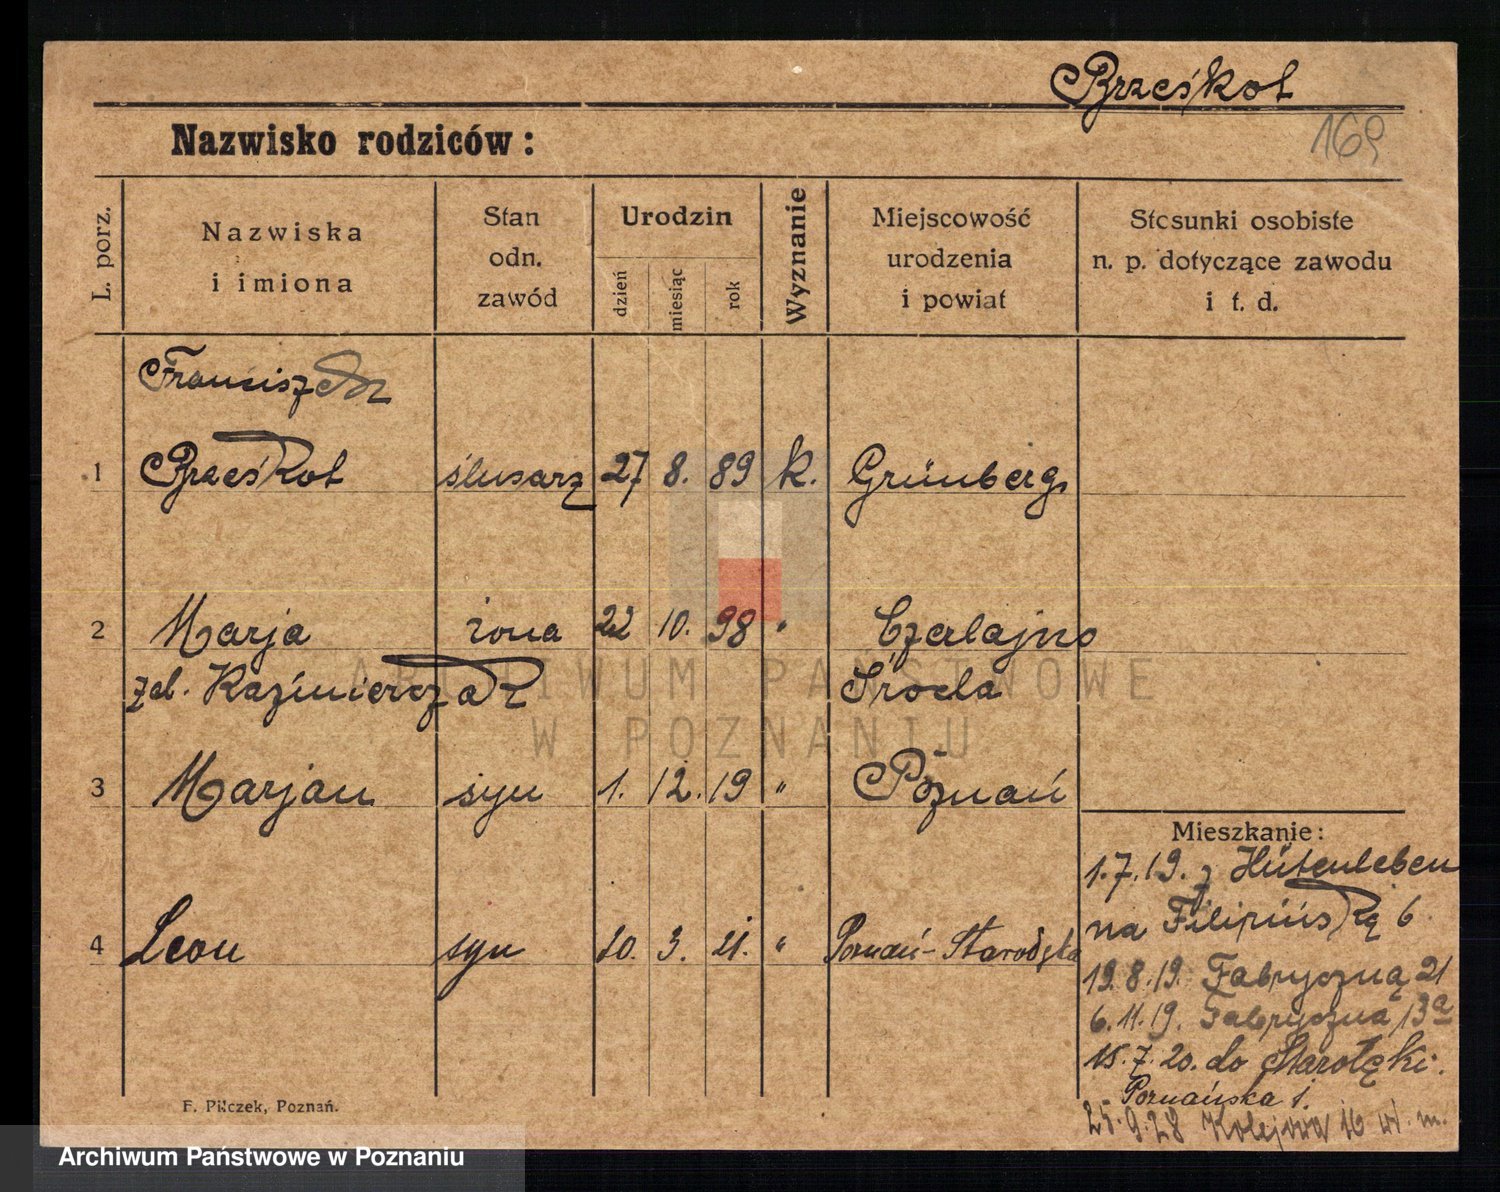 Brześkot
169
Nazwisko rodziców:
L. porz.
Nazwiska
i imiona
Stan
odn.
zawód
Urodzin
dzień
miesiąc
rok
Wyznanie
Miejscowość
urodzenia
i powiat
Stosunki osobiste
n. p. dotyczące zawodu
i t. d.
Franciszek
1 Brześkot ślusarz 27 8. 89 k. Grünberg
2 Marja żona 22 10. 98 " Czerlejno
zd. Kaźmierczak Środa
3 Marjan syn 1. 12. 19 " Poznań
Mieszkanie:
1.7.19. z Hütenleben
na Filipińską 6.
4 Leon syn 20. 3. 21. " Poznań-Starołęka
19.8.19. Fabryczną 21
6.11.19. Fabryczna 13a
15.7.20. do Starołęki.
Poznańska 1.
25.9.28 Kolejowa 16 w. m.
F. Pilczek, Poznań.
ARCHIWUM PAŃSTWOWE
W POZNANIU
Archiwum Państwowe w Poznaniu